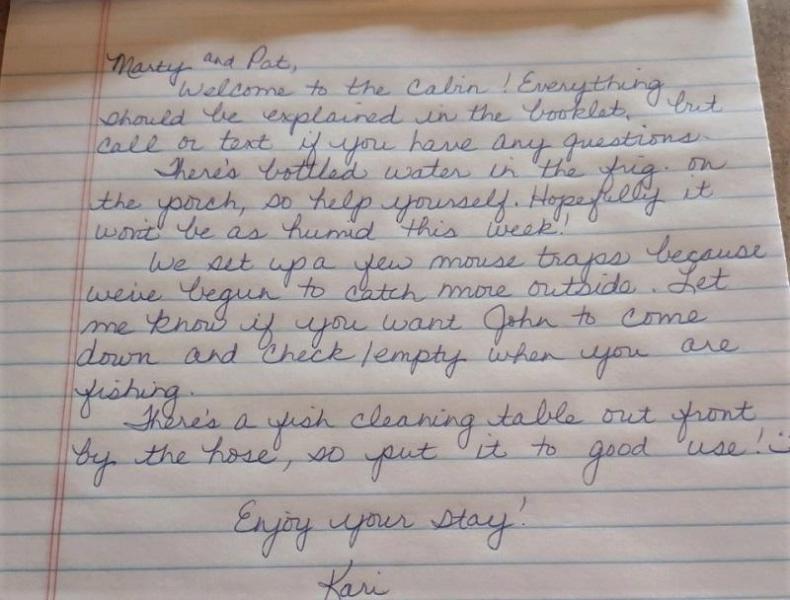 Marty and Pat,
Welcome to the Cabin! Everything
should be explained in the booklet, but
call or text if you have any questions.
There's bottled water in the frig. on
the porch, so help yourself. Hopefully it
won't be as humid this week!
We set up a few mouse traps because
we've begun to catch more outside. Let
me know if you want John to come
down and check/empty when you are
fishing.
There's a fish cleaning table out front
by the hose, so put it to good use! :)
Enjoy your stay!
Kari